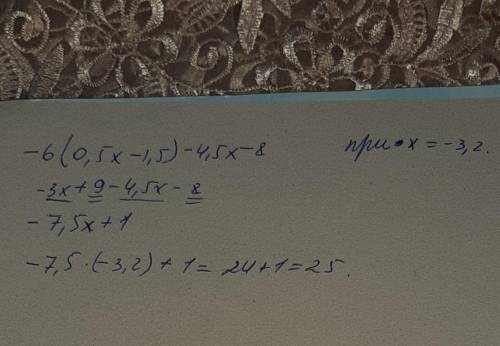 -6(0,5x-1,5)-4,5x-8 при x=-3,2.
-3x+9-4,5x-8
-7,5x+1
-7,5·(-3,2)+1=24+1=25.